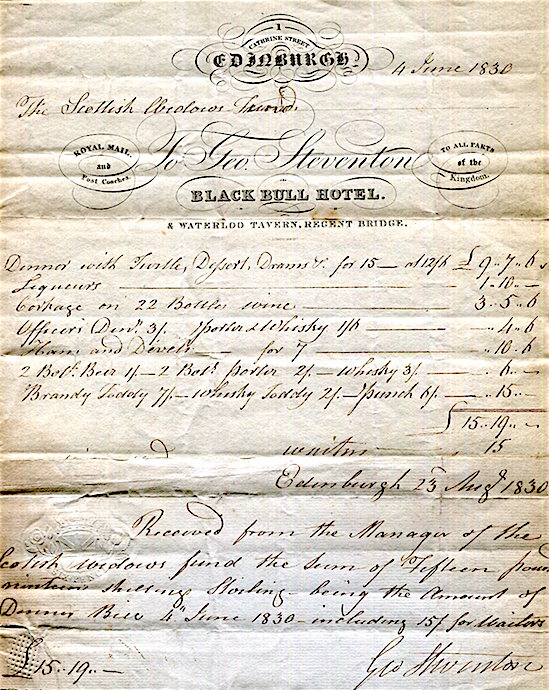 1
CATHRINE STREET
EDINBURGH
4 June 1830
The Scottish Widows Fund.
ROYAL MAIL.
and
Post Coaches.
To Geo. Steventon
TO ALL PARTS
of the
Kingdom.
BLACK BULL HOTEL.
& WATERLOO TAVERN, REGENT BRIDGE.
Dinner with Turtle, Dessert, Drams &c for 15 — at 12/6 £ 9 .. 7 .. 6
Liqueurs — 1 .. 10 .. —
Corkage on 22 Bottles wine — 3 .. 5 .. 6
Officers Dinr. 3/. Porter & Whisky 1/6 — .. 4 .. 6
Ham and Devels — for 7 — .. 10 .. 6
2 Botl. Beer 1/- 2 Botl. porter 2/- whisky 3/- — .. 6 .. —
Brandy Toddy 7/- whisky Toddy 2/- punch 6/- .. 15 .. —
£ 15 .. 19 .. —
waiters — .. 15
Edinburgh 23 Augt 1830
Received from the Manager of the
Scotish widows fund the sum of Fifteen pound
nineteen shillings Sterling being the amount of
Dinner Bill 4th June 1830 - including 15/ for Waiters
£ 15 .. 19 .. —
Geo Steventon